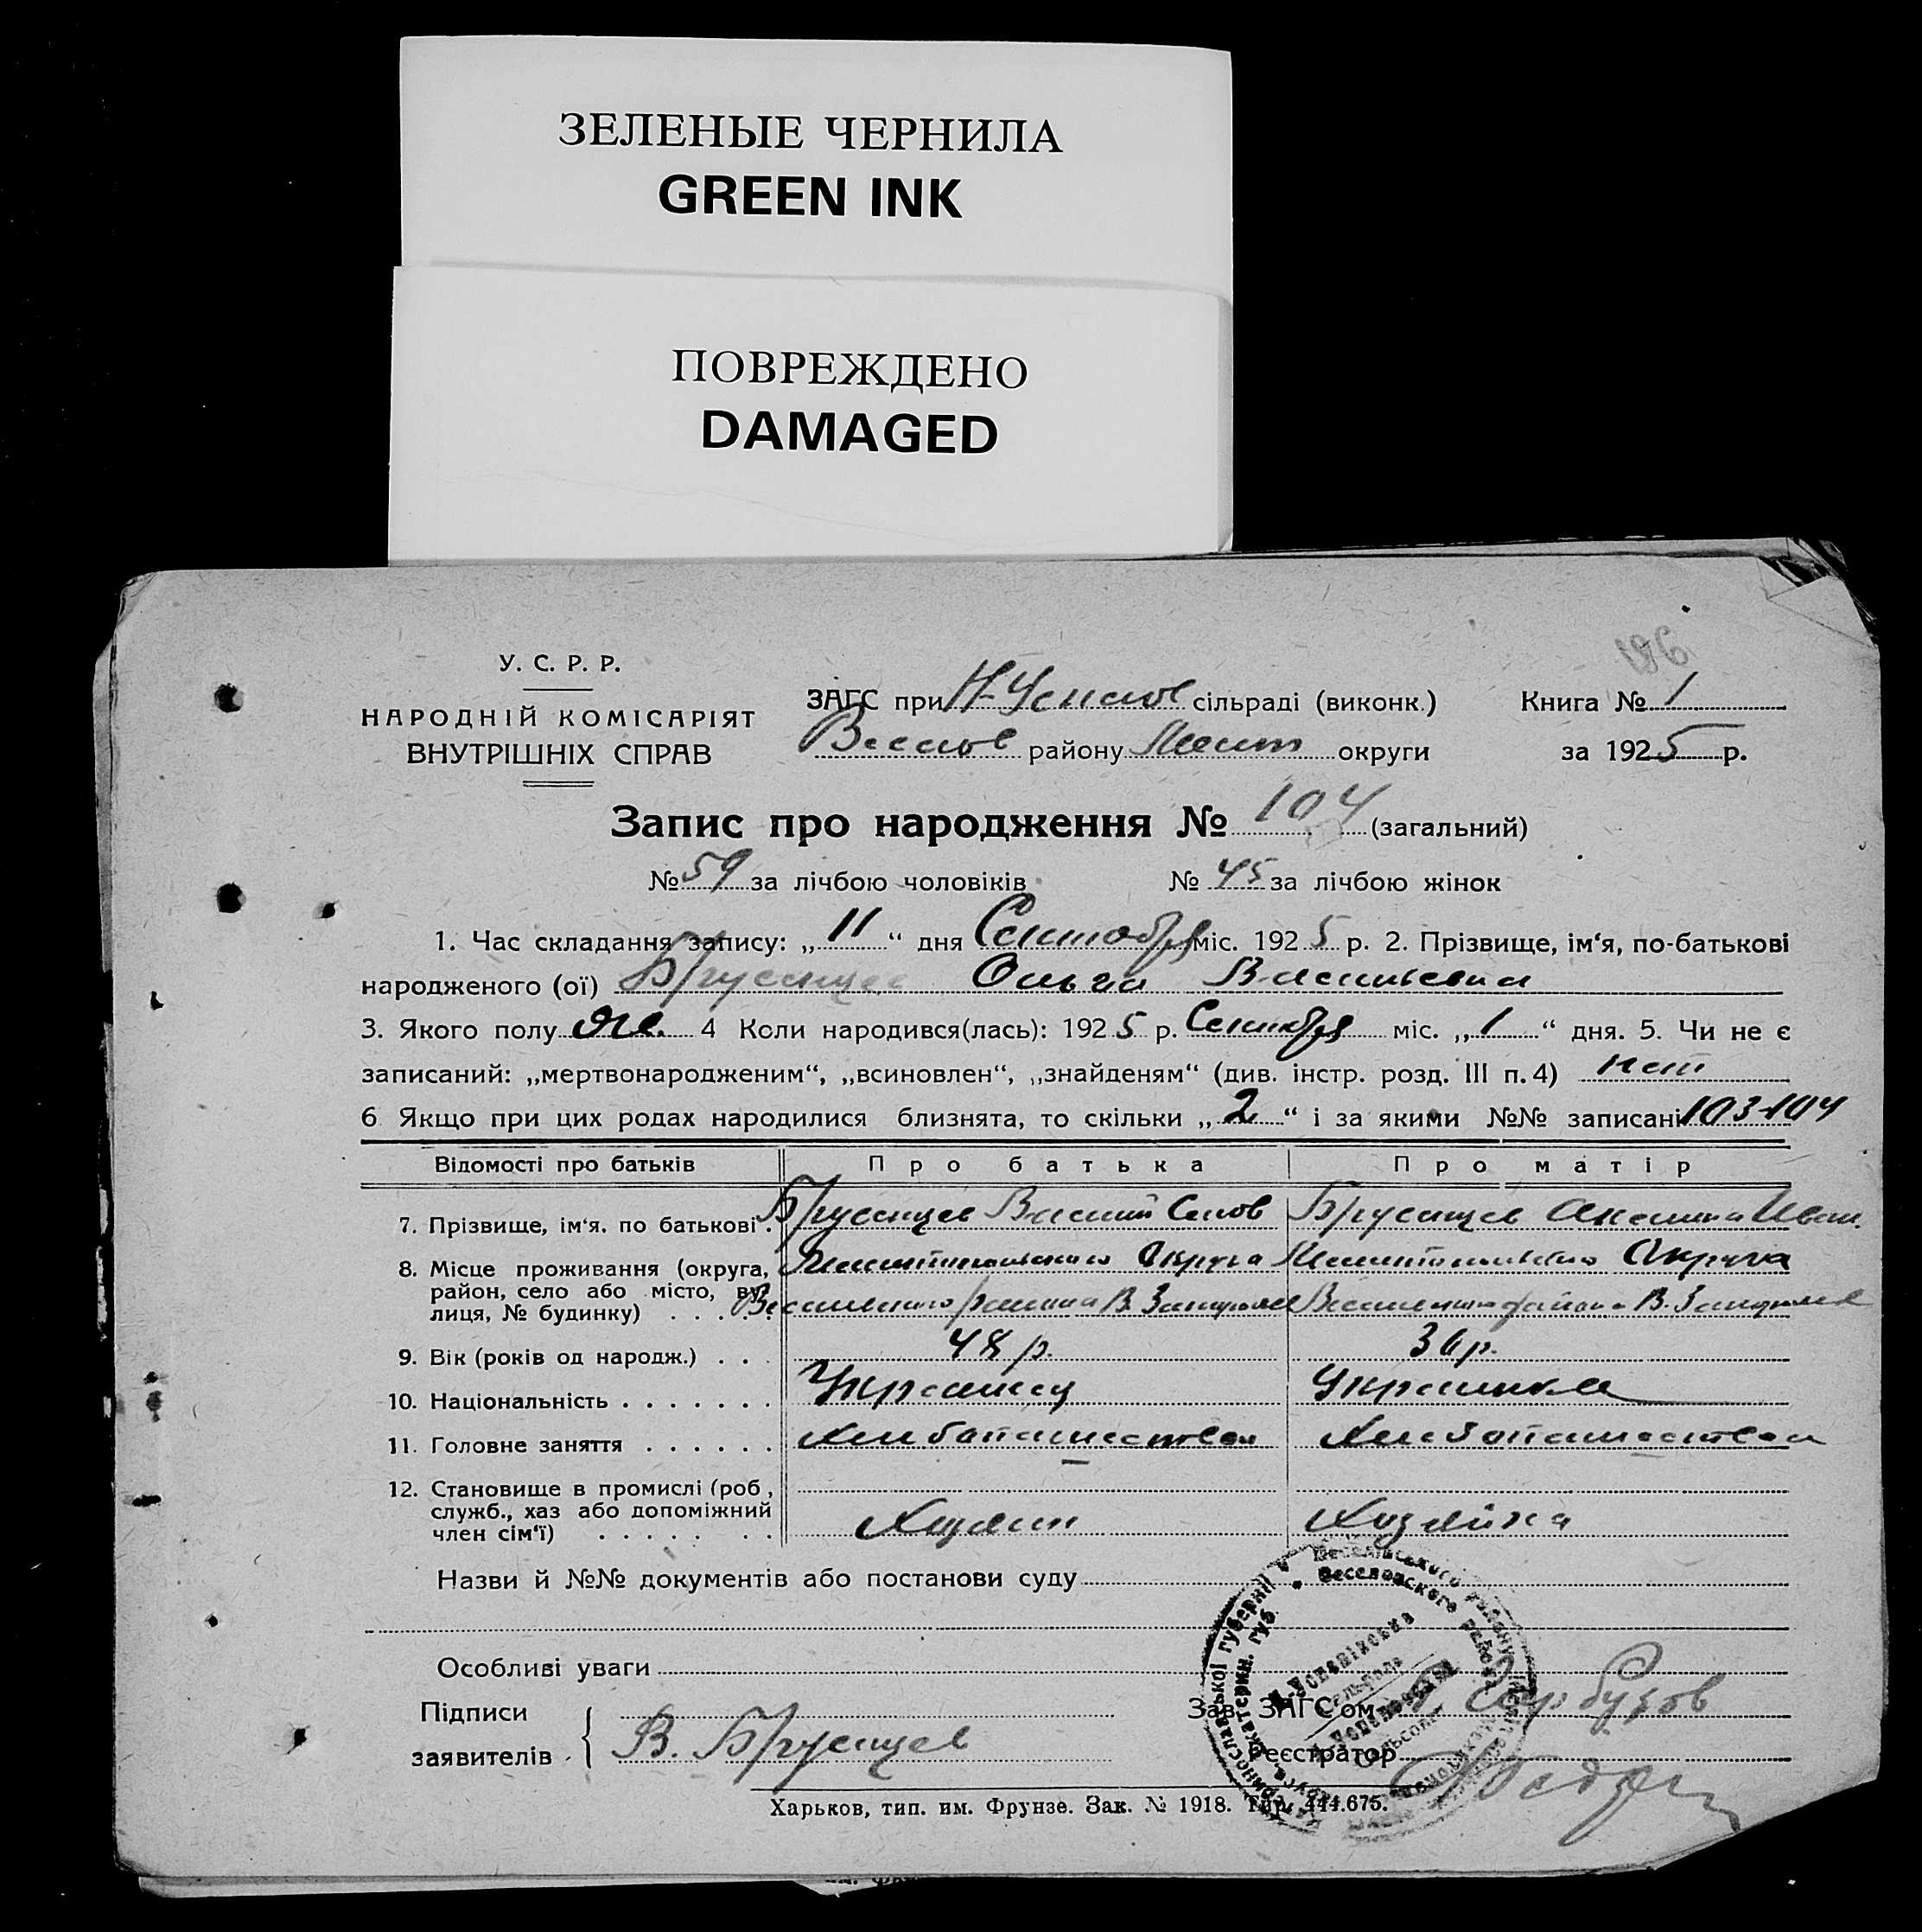 ЗЕЛЕНЫЕ ЧЕРНИЛА
GREEN INK
ПОВРЕЖДЕНО
DAMAGED
196
У. С. Р. Р.
НАРОДНІЙ КОМІСАРІЯТ
ВНУТРІШНІХ СПРАВ
ЗАГС при Н-Успенов сільраді (виконк.)
Весел района Мелит округи
Книга № 1
за 1925 р.
Запис про народження № 104 (загальний)
№ 59 за лічбою чоловіків № 45 за лічбою жінок
1. Час складання запису: „11“ дня Сентября міс. 1925 р. 2. Прізвище, ім‘я, по-батькові
народженого (ої) Ольга Васильевна
3. Якого полу Же. 4 Коли народився(лась): 1925 р. Сентября міс. „1“ дня. 5. Чи не є
записаний: „мертвонародженим“, „всиновлен“, „знайденям“ (див. інстр. розд. III п. 4) нет
6 Якщо при цих родах народилися близнята, то скільки „2“ і за якими №№ записані 103-104
Відомості про батьків Про батька Про матір
7. Прізвище, ім‘я, по батькові . Василий Иван.
8. Місце проживання (округа, район, село або місто, вулиця, № будинку) . . . . . Мелитопольского Округа Мелитопольского Округа
района В. района В.
9. Вік (років од народж.) . . . 48 р. 36 р.
10. Національність . . . . . . . Украинец Украинка
11. Головне заняття . . . . . . Хлебопашеством Хлебопашеством
12. Становище в промислі (роб, служб., хаз або допоміжний член сім‘ї) . . . . . . . Хозяин Хозяйка
Назви й №№ документів або постанови суду
Особливі уваги
Підписи
заявителів В.
Зав. ЗАГС‘ом
Реєстратор
Харьков, тип. им. Фрунзе. Зак. № 1918. Тир. 444.675.
Веселівського району
Веселовского района